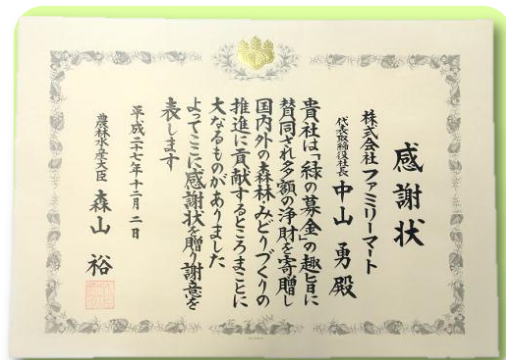 感謝状
株式会社ファミリーマート
代表取締役社長 中山 勇 殿
貴社は「緑の募金」の趣旨に
賛同され多額の浄財を寄贈し
国内外の森林みどりづくりの
推進に貢献するところまことに
大なるものがありました
よってここに感謝状を贈り謝意を
表します
平成二十七年十二月二日
農林水産大臣 森山 裕